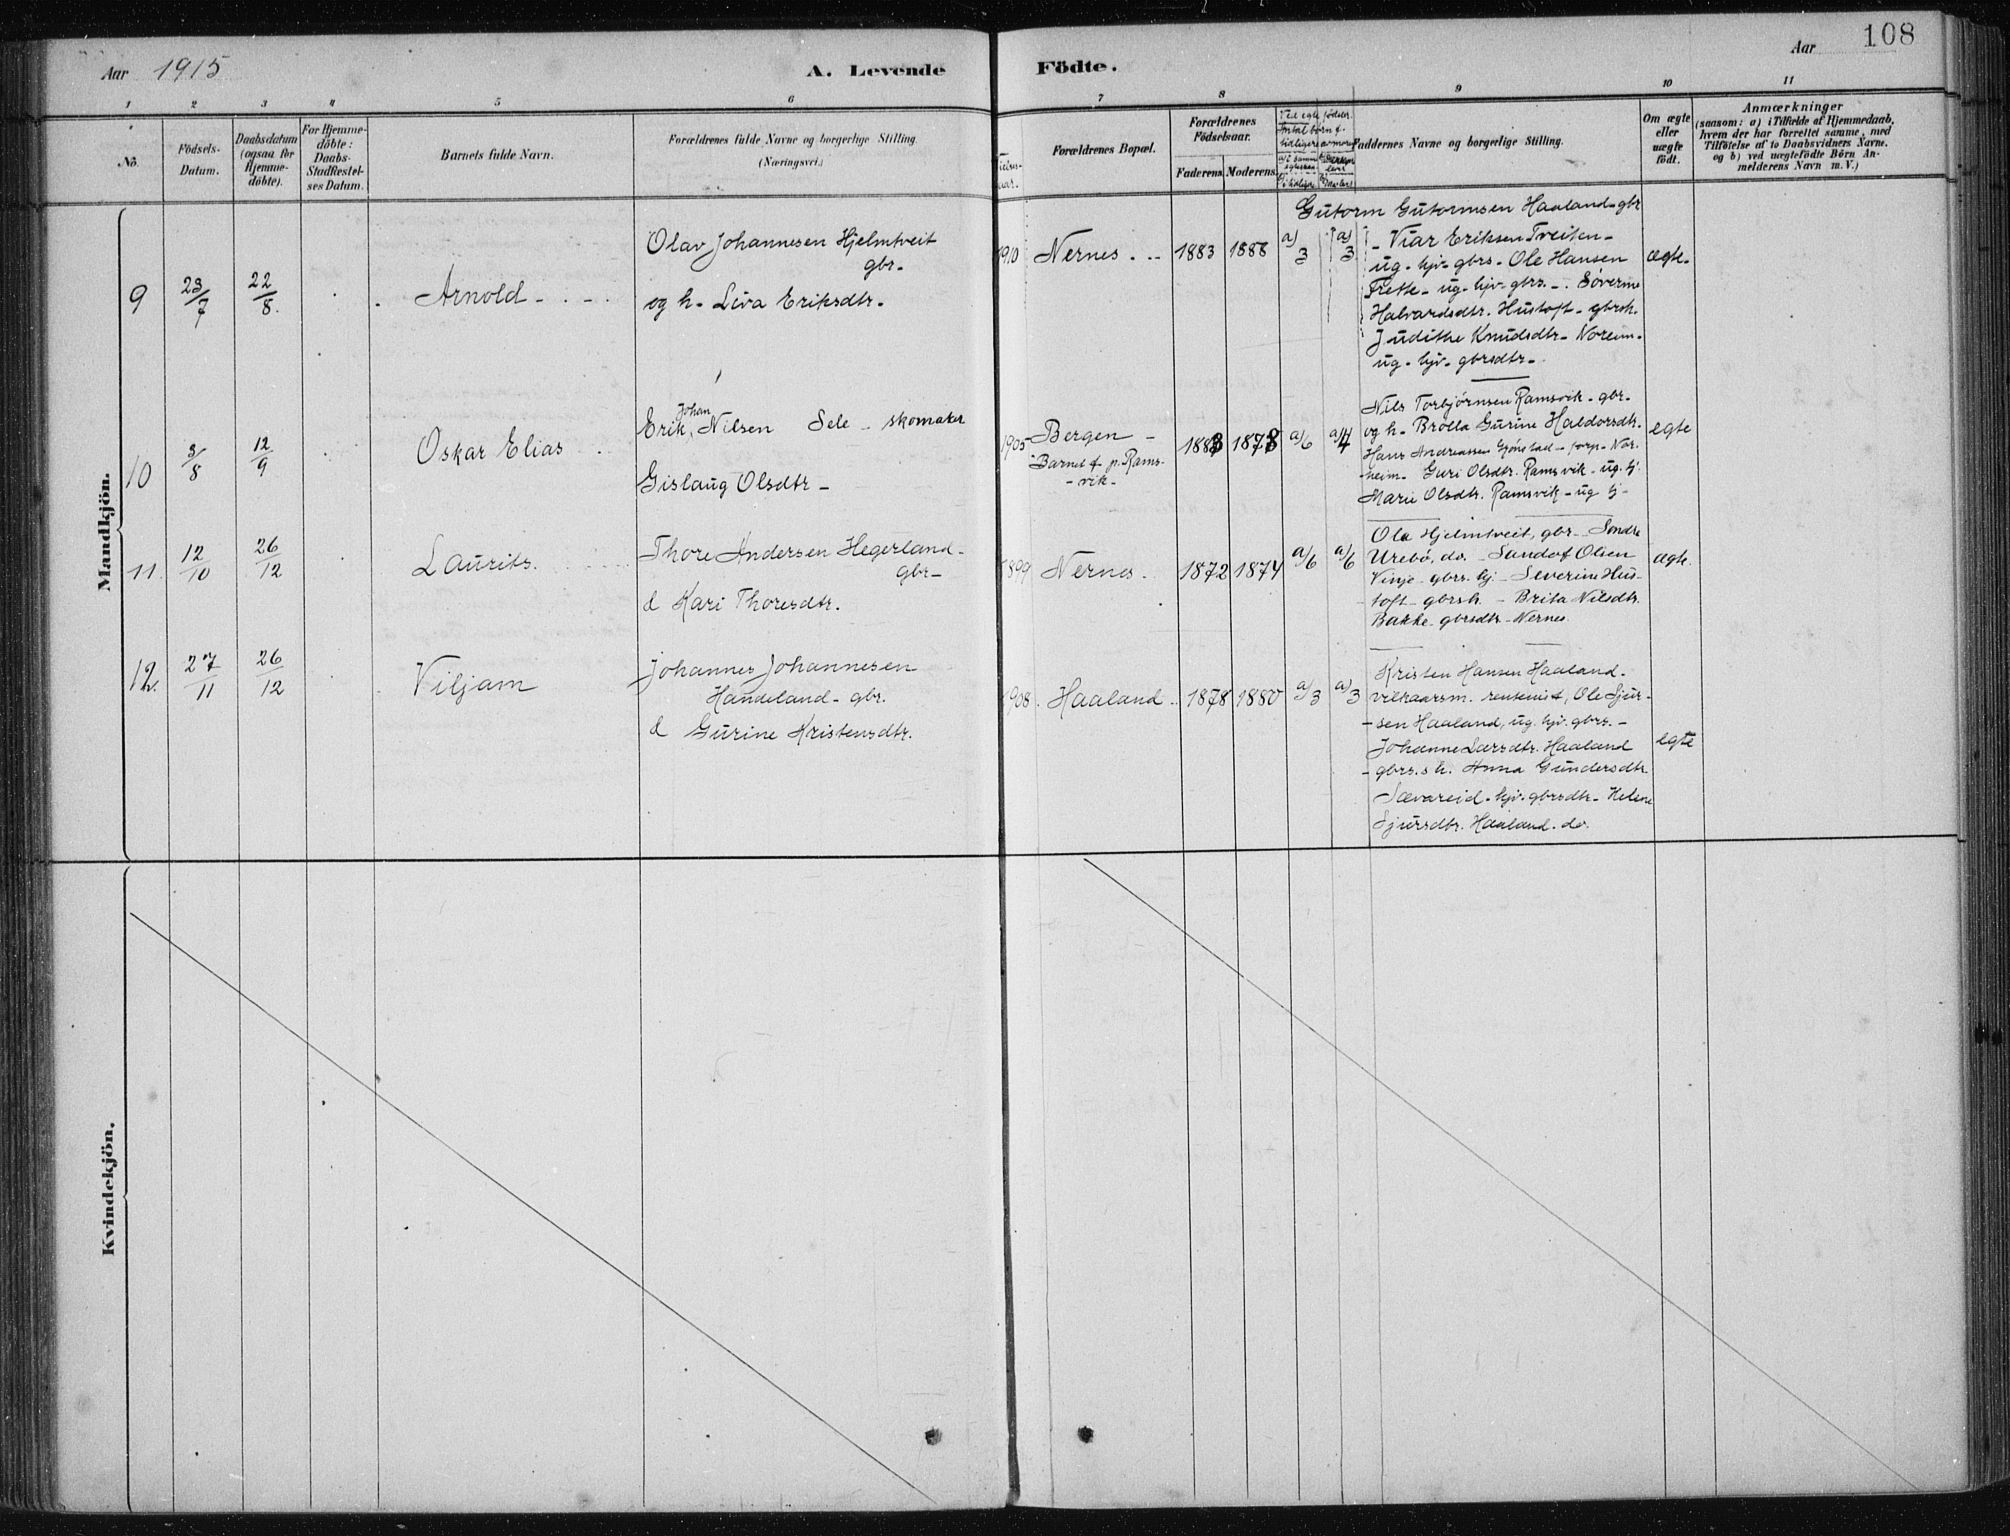 108
Aar 1915
A. Levende
Födte.
Aar
1 2 3 4 5 6 7 8 9 10 11
No.
Födsels-
Datum.
Daabsdatum
(ogsaa for
Hjemme-
döbte).
For Hjemme-
döbte:
Daabs-
Stadfæstel-
ses Datum.
Barnets fulde Navn.
Forældrenes fulde Navne og borgerlige Stilling
(Næringsvei.)
Forældrenes Bopæl.
Forældrenes
Födselsaar.
Faderens
Moderens
Faddernes Navne og borgerlige Stilling.
Om ægte
eller
uægte
födt.
Anmærkninger
(saasom: a) i Tilfælde af Hjemmedaab,
hvem der har forrettet samme, med
Tilföielse af to Daabsvidners Navne.
og b) ved uægtefödte Börn An-
melderens Navn m. V.)
Mandkjön.
9
23/7
22/8.
Arnold
Olav Johannesen Hjelmtveit
gbr.
og h. Liva Eriksdtr.
1910
Nernes.
1883
1888
a/3
a/3
Gutorm Gutormsen Haaland gbr
Viar Eriksen Tveiten
ug. hjv. gbrs. Ole Hansen
Frette ug. hjv. gbrs. Söverine
Halvardsdtr. Hustoft gbrsh.
Judithe Knudsdtr. Noreim
ug. hjv. gbrsdtr.
ægte.
10
3/8
12/9
Oskar Elias
Johan
Erik Nilsen Sele skomaker
Gislaug Olsdtr
1905
Bergen
Barnet f. p. Rams-
vik.
1883
1878
a/6
a/4
Nils Torbjörnsen Ramsvik gbr.
og h. Brölla Gurine Haldorsdtr.
Hans Andreassen Gjönstad forp. Nor-
heim. Guri Olsdtr. Ramsvik ug. hj.
Marie Olsdtr. Ramsvik ug hj
egte
11.
12/10
26/12
Laurits.
Thore Andersen Hegerland
gbr
& Kari Thoresdtr.
1899
Nernes.
1872
1874
a/6
a/6
Ola Hjelmtveit, gbr. Sondre
Urebö, do. Sandof Olsen
Vinje gbrs. hj Severine Hus-
toft gbrsh. Brita Nilsdtr.
Bakke gbrsdtr Nernes.
ægte.
12.
27/11
26/12
Viljam
Johannes Johannesen
Handeland gbr.
& Gurine Kristensdtr.
1908.
Haaland
1878
1880
a/3
a/3
Kristen Hansen Haaland
vilkaarsm. rentenist, Ole Sjur-
sen Haaland, ug. hjv. gbrs.
Johanne Larsdtr. Haaland
gbrs.h. Anna Gundersdtr.
Sævareid hjv. gbrsdtr. Helene
Sjursdtr. Haaland. do.
egte
Kvindekjön.